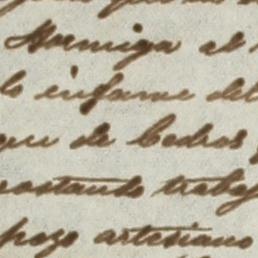 Hormiga al
lo infame del
que de Cedros
costando trabaj
pozo artesiano